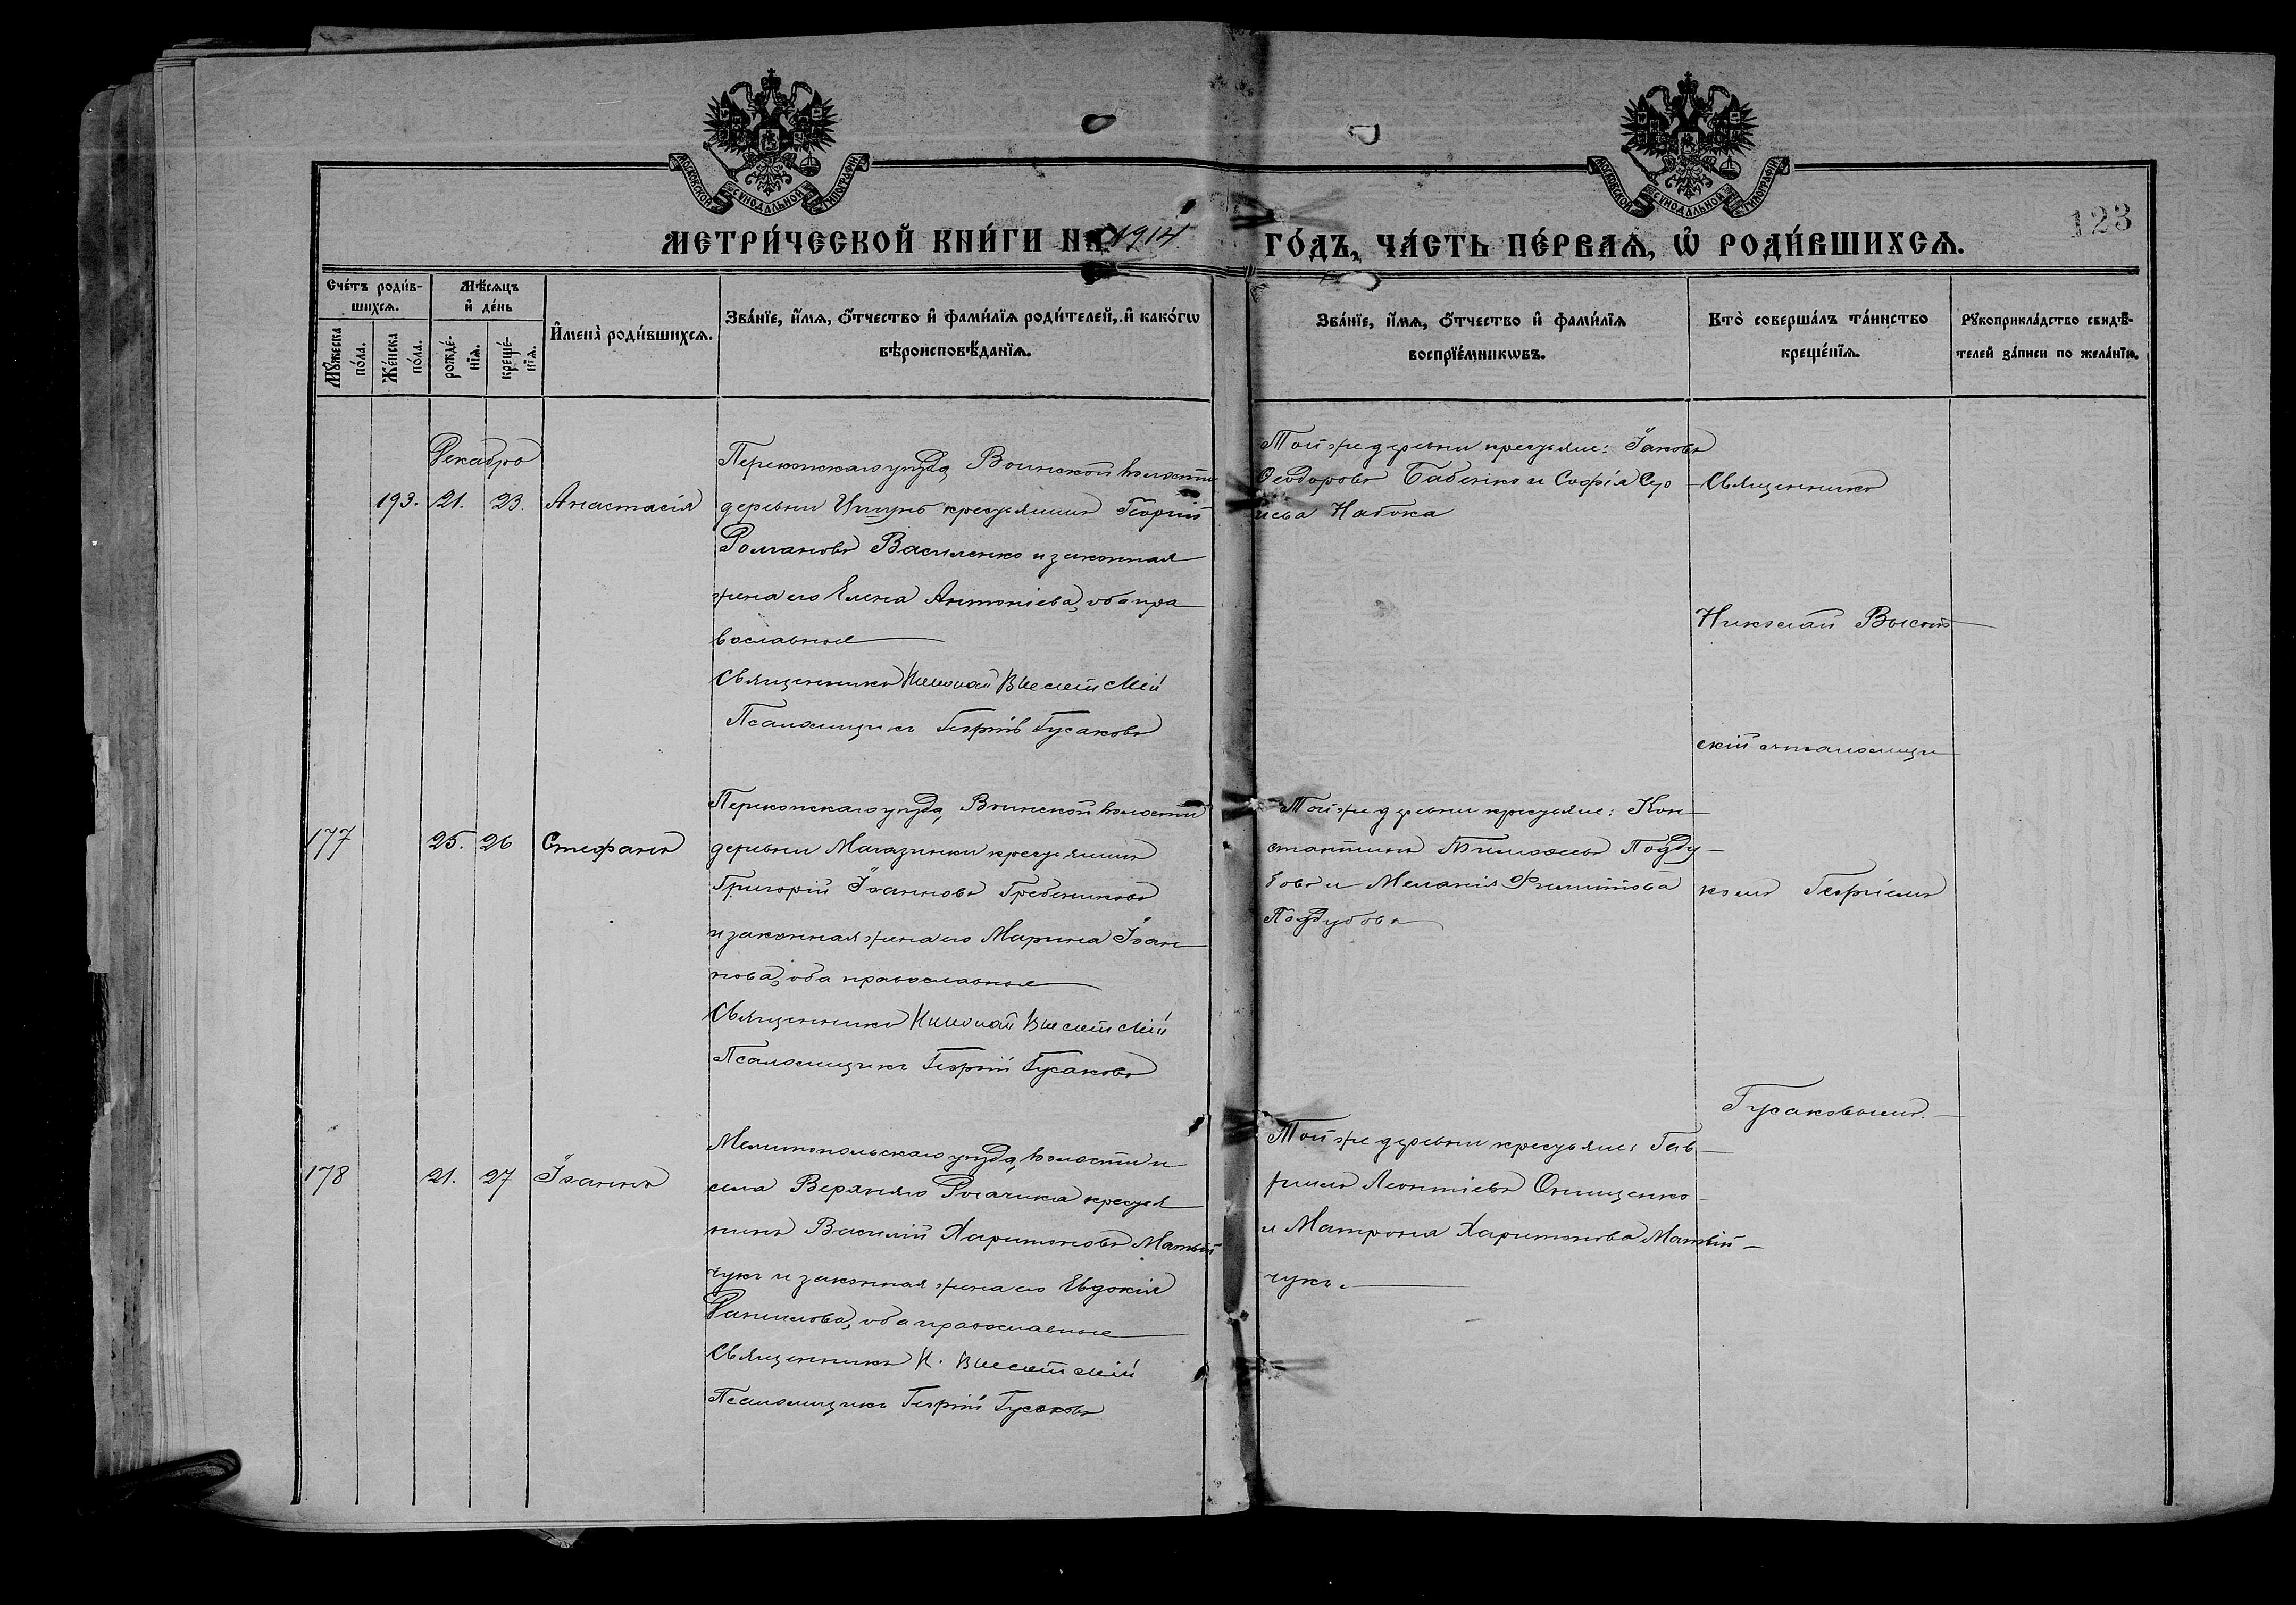 МОСКОВСКОЙ СѴНОДАЛЬНОЙ ТИПОГРАФІИ
МОСКОВСКОЙ СѴНОДАЛЬНОЙ ТИПОГРАФІИ
123
МЕТРИ́ЧЕСКОЙ КНИ́ГИ НА 1914
ГО́ДЪ, ЧА́СТЬ ПЕ́РВАѦ, Ѿ РОДИ́ВШИХСѦ.
Сче́тъ роди́в-
шихсѧ.
Мꙋ́жеска
по́ла.
Же́нска
по́ла.
Мѣ́сѧцъ
и҆ де́нь
рожде́-
нїѧ.
креще́-
нїѧ.
И҆мена̀ роди́вшихсѧ.
Зва́нїе, и҆́мѧ, ѻ҆́тчество и҆ фами́лїѧ роди́телей, и҆ како́гѡ
вѣроисповѣ́данїѧ.
Зва́нїе, и҆́мѧ, ѻ҆́тчество и҆ фами́лїѧ
воспрїе́мникѡвъ.
Кто̀ соверша́лъ та́инство
креще́нїѧ.
Рꙋкоприкла́дство свидѣ́-
телей за́писи по жела́нїю.
Декабрь
193. 21. 23. Анастасія
Перекопскаго уѣзда, Воинской волости
деревни Ишунь крестьянинъ Георгій
Романовъ Василенко и законная
жена его Елена Антоніева, оба пра
вославные
Священникъ Николай Высотскій
Псаломщикъ Георгій Гусаковъ
Той же деревни крестьяне: Іаковъ
Ѳеодоровъ Бабенко и Софія
Набока
Священникъ
Николай Высот
скій съ псаломщи
комъ Георгіемъ
Гусаковымъ.
177 25. 26 Стефанъ
Перекопскаго уѣзда, Воинской волости
деревни Магазинки крестьянинъ
Григорій Іоанновъ Гребениковъ
и законная жена его Марина Іоан
нова, оба православные
Священникъ Николай Высотскій
Псаломщикъ Георгій Гусаковъ
Той же деревни крестьяне: Кон
стантинъ Поdду
бовъ и Меланія Филиппова
Поддубова
178 21. 27 Іоаннъ
Мелитопольскаго уѣзда, волости и
села Верхняго Рогачика крестья
нинъ Василій Харитоновъ Матвій
чукъ и законная жена его Евдокія
Данилова, оба православные
Священникъ Н. Высотскій
Псаломщикъ Георгій Гусаковъ
Той же деревни крестьяне: Гав
ріилъ Леонтіевъ Онищенко
и Матрона Харитонова Матвій
чукъ.